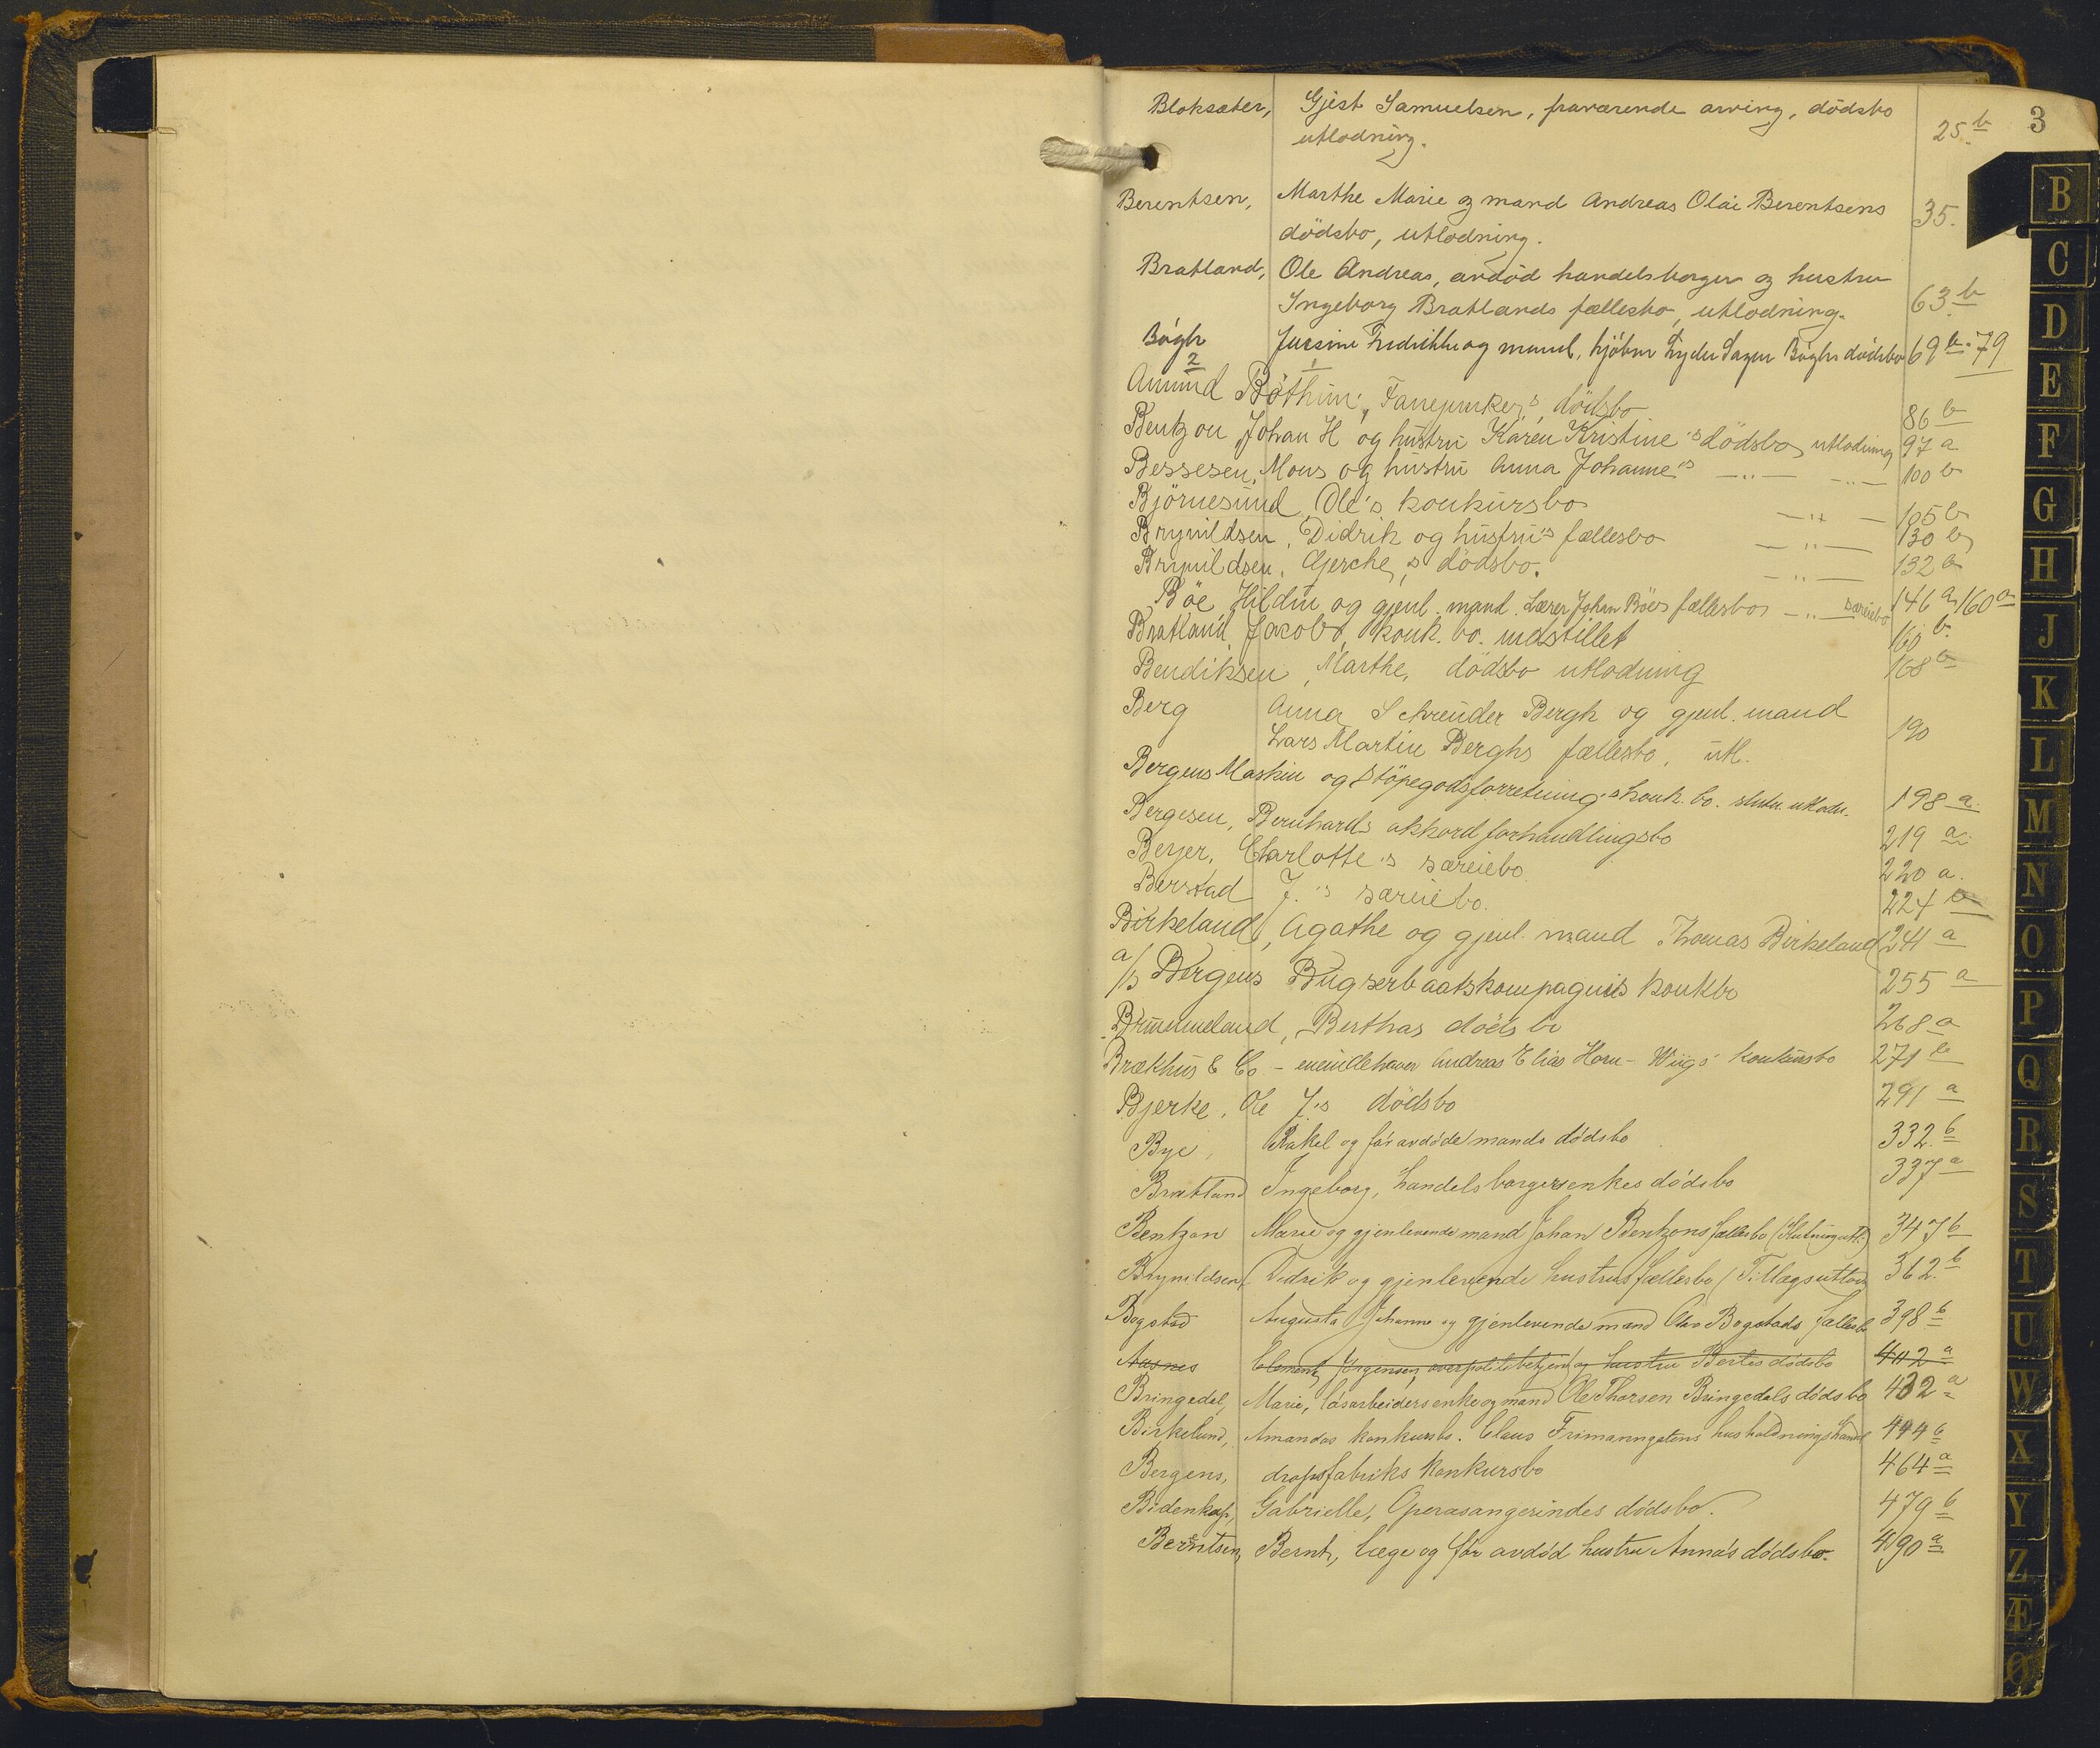 3
Bloksæter, Gjest Samuelsen, fraværende arving, dödsbo
utlodning. 25 b
Berentsen, Marthe Marie og mand Andreas Olai Berentsens 35.
dödsbo, utlodning.
Bratland, Ole Andreas, avdöd handelsborger og hustru
Ingeborg Bratlands fællesbo, utlodning. 63 b
Bøgh og mand, Bøghs dödsbo 69 b. 79
2 1
Amund Böthun, dödsbo 86 b
Bentzon, Johan H og hustru Karen Kristine's dödsbo utlodning 97 a
Bessesen, Mons og hustru Anna Johanne's —"— —"— 100 b
Björnesund, Ole's konkursbo —"— 105 b
Brynildsen, Didrik og hustru's fællesbo —"— 130 b
Brynildsen, Gjerche's dödsbo. —"— 132 b
Böe, Hildur og gjenl. mand. Lærer Johan Böes fællesbo —"— særeiebo 146 a, 160 a
Bratland, Jacobs, konk. bo. indstillet 160 b.
Bendiksen, Marthe, dödsbo utlodning 168 b
Berg Anna Schreuder Bergh og gjenl. mand
Lars Martin Berghs fællesbo, utl. 190
Bergens Maskin og Stöpegodsforretning's konk. bo. slutn. utlodn. 198 a.
Bergesen, Bernhards akkordforhandlingsbo 219 a.
Beyer, Charlotte's særeiebo 220 a.
Berstad J.'s særeiebo. 224 b
Birkeland, Agathe og gjenl. mand Thomas Birkeland 241 a
A/S Bergens Bugserbaatskompagnis konkbo 255 a
Brimmeland, Berthas dödsbo 268 a
Brækhus & Co - eneindehaver Andreas Elias Horn-Wiigs konkursbo 271 b
Bjerke, Ole J's dödsbo 291 a
Bye, Rakel og før avdøde mands dødsbo 332. b
Bratland Ingeborg, handelsborgersenkes dødsbo 337 a
Bentzon Marie og gjenlevende mand Johan Bentzons fællesbo (Slutningsutl.) 347 b
Brynildsen, Didrik og gjenlevende hustrus fællesbo (Tillægsutlodn 362. b
Bogstad Augusta Johanne og gjenlevende mand Olav Bogstads fællesbo 398 b
Aasnes Clement Jørgensen, overpolitibetjent og hustru Bertes dødsbo 402 a
Bringedal, Marie, løsarbeidersenke og mand Ole Thorsen Bringedals dødsbo 432 a
Birkelund, Amandas konkursbo. Claus Frimanngatens husholdningshandel 444 b
Bergens, dropsfabriks konkursbo 464 a
Bidenkap, Gabrielle, Operasangerindes dødsbo. 479 b
Berntsen, Bernt, læge og før avdød hustru Anna's dødsbo. 490 a
B
C
D
E
F
G
H
J
K
L
M
N
O
P
Q
R
S
T
U
W
X
Y
Z
Æ
Ø